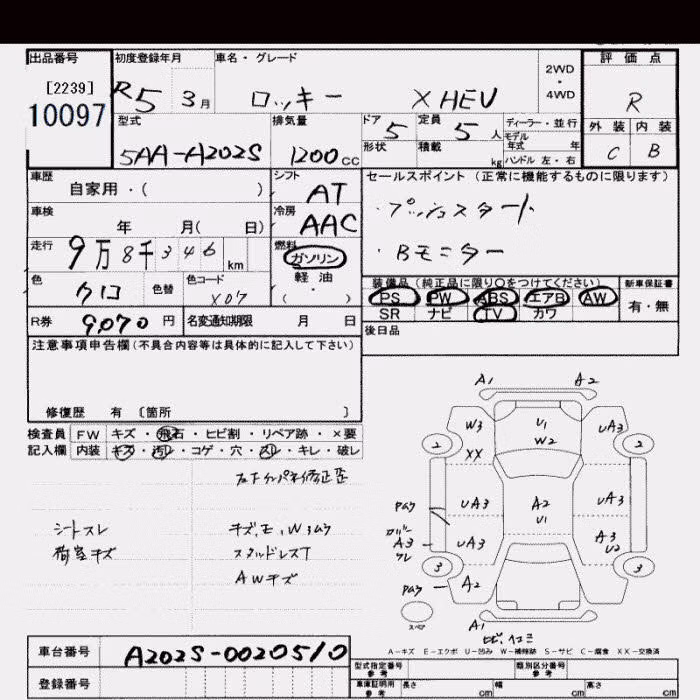 出品番号 初度登録年月 車名・グレード 2WD ・ 4WD 評価点
[2239] R5 3月 ロッキー X HEV R
10097
型式 排気量 ドア 定員 ディーラー・並行 外装 内装
5AA-A202S 1200cc 5 5人 モデル年式 年 C B
形状 積載 kg ハンドル 左・右
車歴 シフト セールスポイント (正常に機能するものに限ります)
自家用・( ) AT ・プッシュスタート
車検 冷房
年 月( 日) AAC ・Bモニター
走行 燃料
9万8千346km ガソリン
軽・油
・( )
色 色替 色コード 装備品(純正品に限り〇をつけてください) 新車保証書
クロ X07 PS PW ABS エアB AW 有・無
SR ナビ TV カワ
R券 9,070円 名変通知期限 月 日 後日品
注意事項申告欄(不具合内容等は具体的に記入して下さい)
修復歴 有 〔箇所 〕
検査員 FW キズ・飛石・ヒビ割・リペア跡・×要
記入欄 内装 キズ・汚レ・コゲ・穴・スレ・キレ・破レ
シートスレ キズ,エ,Wコムラ
荷室キズ スタッドレスT
AWキズ
A1 A2
W3 U1 W2 UA3
2 XX 2
UA3 A2 U1 UA3
A3 UA3 A3 U2
3 A2 3
スペア A1
A-キズ E-エクボ U-凹み W-補修跡 S-サビ C-腐食 XX-交換済
車台番号 A202S-0020510 型式指定番号 参考 類別区分番号 参考
登録番号 車庫証明用 参考 長さ cm 幅 cm 高さ cm